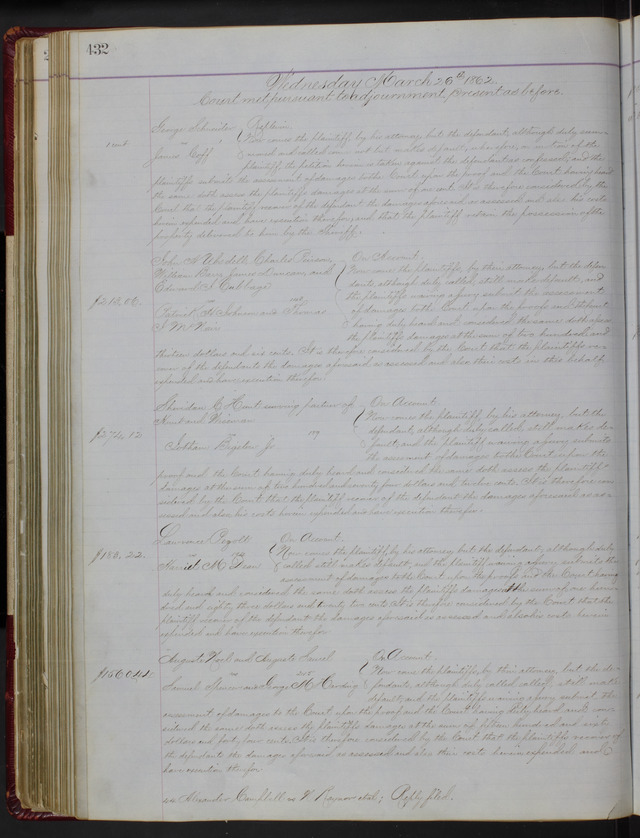 432
Wednesday March 26th 1862.
Court met pursuant to adjournment, present as before.
George Schneider Replevin
Now comes the plaintiff by his attorney, but the defendant although duly
1 cent
James Goff
named and called comes not but makes default, wherefore, on motion of the
plaintiff, the petition herein is taken against the defendant as confessed, and the
plaintiff submits the assessment of damages to the Court upon the proof and the Court having heard
the same doth assess the plaintiffs damages at the sum of one cent. It is therefore considered by the
Court that the plaintiff recover of the defendant the damages aforesaid as assessed and also his costs
herein expended and have execution therefor, and that the plaintiff retain the possession of the
property delivered to him by the Sheriff.
John Charles
On Account
William James Duncan, and
Now come the plaintiffs, by their attorney but the defen-
Edward J.
dants although duly called, still make default, and
$213.06.
the plaintiffs waiving a jury submit the assessment
Patrick and Thomas
of damages to the Court upon the proofs and the Court
having duly heard and considered the same doth assess
the plaintiffs damages at the sum of two hundred and
thirteen dollars and six cents. It is therefore considered by the Court that the plaintiffs re-
cover of the defendants the damages aforesaid as assessed and also their costs in this behalf
expended and have execution therefor.
Sheridan C. Hunt surviving partner of
On Account
Hunt and
Now comes the plaintiff, by his attorney, but the
$274.12.
defendant, although duly called, still makes de-
Bigelow Jr
fault, and the plaintiff waiving a jury submits
the assessment of damages to the Court upon the
proof and the Court having duly heard and considered the same doth assess the plaintiff's
damages at the sum of two hundred and seventy four dollars and twelve cents. It is therefore con-
sidered by the Court that the plaintiff recover of the defendant the damages aforesaid as as-
sessed and also his costs herein expended and have execution therefor.
Lawrence
On Account.
$183.22.
Now comes the plaintiff, by his attorney but the defendant, although duly
Daniel M. Dean
called still makes default, and the plaintiff waiving a jury submits the
assessment of damages to the Court upon the proofs and the Court having
duly heard and considered the same doth assess the plaintiffs damages at the sum of one hun-
dred and eighty three dollars and twenty two cents. It is therefore considered by the Court that the
plaintiff recover of the defendant the damages aforesaid as assessed and also his costs herein
expended and have execution therefor.
Auguste Noel and Auguste
On Account.
$1560.44.
Now come the plaintiffs, by their attorney, but the de-
Samuel Spencer and George M. Harding
fendants, although duly called still make
default, and the plaintiffs waiving a jury submit the
assessment of damages to the Court upon the proof and the Court having duly heard and con-
sidered the same doth assess the plaintiffs damages at the sum of fifteen hundred and sixty
dollars and forty four cents. It is therefore considered by the Court that the plaintiffs recover of
the defendants the damages aforesaid as assessed and also their costs herein expended and
have execution therefor.
Alexander Campbell vs et al; Reply filed.